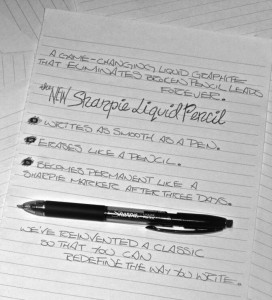 A GAME-CHANGING LIQUID GRAPHITE
THAT ELIMINATES BROKEN PENCIL LEADS
FOREVER.
the NEW Sharpie Liquid Pencil
WRITES AS SMOOTH AS A PEN.
ERASES LIKE A PENCIL.
BECOMES PERMANENT LIKE A
SHARPIE MARKER AFTER THREE DAYS.
SHARPIE
WE'VE REINVENTED A CLASSIC
SO THAT YOU CAN
REDEFINE THE WAY YOU WRITE.